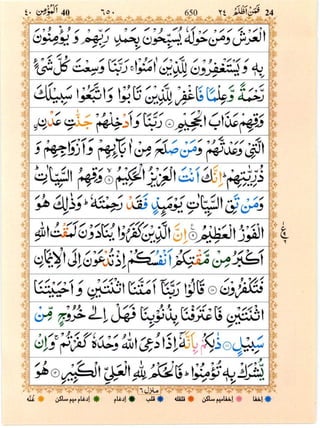 ٤٠ اَلْمُؤْمِن 40 ٦٥٠ 650 ٢٤ فَمَنْ اَظْلَمُ 24
الْعَرْشَ وَمَنْ حَوْلَهٗ يُسَبِّحُوْنَ بِحَمْدِ رَبِّهِمْ وَ يُؤْمِنُوْنَ
بِهٖ وَ يَسْتَغْفِرُوْنَ لِلَّذِيْنَ اٰمَنُوْا ۚ رَبَّنَا وَسِعْتَ كُلَّ شَیْءٍ
رَّحْمَةً وَّ عِلْمًا فَاغْفِرْ لِلَّذِيْنَ تَابُوْا وَ اتَّبَعُوْا سَبِيْلَكَ
وَقِهِمْ عَذَابَ الْجَحِيْمِ ۝ رَبَّنَا وَاَدْخِلْهُمْ جَنّٰتِ عَدْنِ
الَّتِيْ وَعَدْتَّهُمْ وَمَنْ صَلَحَ مِنْ اٰبَآئِهِمْ وَ اَزْوَاجِهِمْ وَ
ذُرِّيّٰتِهِمْ ؕ اِنَّكَ اَنْتَ الْعَزِيْزُ الْحَكِيْمُ ۝ وَقِهِمُ السَّيِّاٰتِ ؕ
وَمَنْ تَقِ السَّيِّاٰتِ يَوْمَئِذٍ فَقَدْ رَحِمْتَهٗ ؕ وَذٰلِكَ هُوَ
الْفَوْزُ الْعَظِيْمُ ۝ اِنَّ الَّذِيْنَ كَفَرُوْا يُنَادَوْنَ لَمَقْتُ اللّٰهِ
اَكْبَرُ مِنْ مَّقْتِكُمْ اَنْفُسَكُمْ اِذْ تُدْعَوْنَ اِلَى الْاِيْمَانِ
فَتَكْفُرُوْنَ ۝ قَالُوْا رَبَّنَا اَمَتَّنَا اثْنَتَيْنِ وَ اَحْيَيْتَنَا
اثْنَتَيْنِ فَاعْتَرَفْنَا بِذُنُوْبِنَا فَهَلْ اِلٰى خُرُوْجٍ مِّنْ
سَبِيْلٍ ۝ ذٰلِكُمْ بِاَنَّهٗٓ اِذَا دُعِيَ اللّٰهُ وَحْدَهٗ كَفَرْتُمْ ۚ وَاِنْ
يُّشْرَكْ بِهٖ تُؤْمِنُوْا ؕ فَالْحُكْمُ لِلّٰهِ الْعَلِيِّ الْكَبِيْرِ ۝ هُوَ
اِخفا اِخفامیم ساکن قلقلہ قلب اِدغام اِدغام میم ساکن غُنّہ